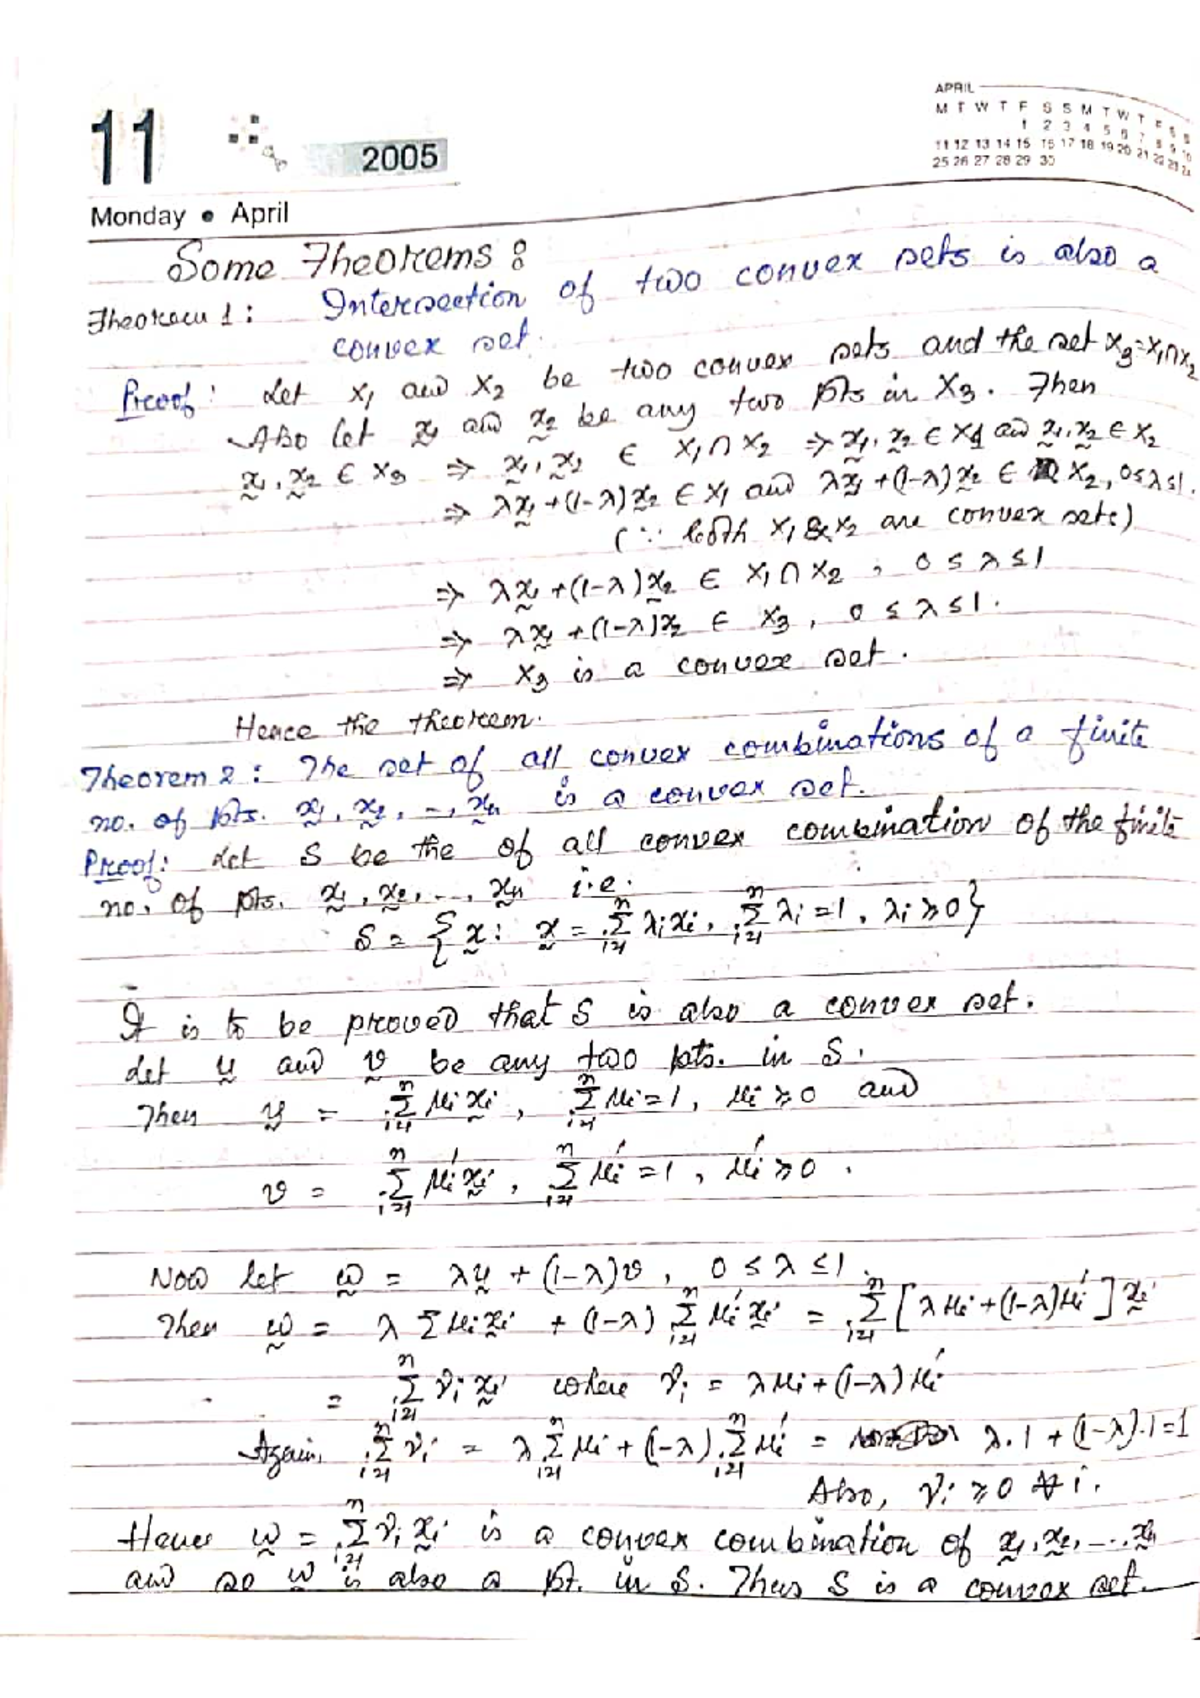 APRIL
M T W T F S S M T W T F S S
1 2 3 4 5 6 7 8 9 10
11 12 13 14 15 16 17 18 19 20 21 22 23 24
25 26 27 28 29 30
11
2005
Monday • April
Some Theorems :
Theorem 1 : Intersection of two convex sets is also a
convex set.
Proof : Let X₁ and X₂ be two convex sets and the set X₃ = X₁∩X₂
Also let x̰₁ and x̰₂ be any two pts in X₃. Then
x̰₁, x̰₂ ∈ X₃ ⇒ x̰₁, x̰₂ ∈ X₁∩X₂ ⇒ x̰₁, x̰₂ ∈ X₁ and x̰₁, x̰₂ ∈ X₂
⇒ λx̰₁ + (1-λ)x̰₂ ∈ X₁ and λx̰₁ + (1-λ)x̰₂ ∈ X₂, 0≤λ≤1.
(∵ both X₁ & X₂ are convex sets)
⇒ λx̰₁ + (1-λ)x̰₂ ∈ X₁∩X₂, 0 ≤ λ ≤ 1
⇒ λx̰₁ + (1-λ)x₂ ∈ X₃, 0 ≤ λ ≤ 1.
⇒ X₃ is a convex set.
Hence the theorem.
Theorem 2 : The set of all convex combinations of a finite
no. of pts. x̰₁, x̰₂, --, x̰ₙ is a convex set.
Proof : Let S be the of all convex combination of the finite
no. of pts. x̰₁, x̰₂, ..., x̰ₙ i.e.
S = { x̰ : x̰ = ∑ᵢ₌₁ⁿ λᵢxᵢ, ∑ᵢ₌₁ⁿ λᵢ = 1, λᵢ ≥ 0}
It is to be proved that S is also a convex set.
Let ṵ and v̰ be any two pts. in S.
Then ṵ = ∑ᵢ₌₁ⁿ μᵢ x̰ᵢ, ∑ᵢ₌₁ⁿ μᵢ = 1, μᵢ ≥ 0 and
v = ∑ᵢ₌₁ⁿ μᵢ′ x̰ᵢ, ∑ᵢ₌₁ⁿ μᵢ′ = 1, μᵢ′ ≥ 0.
Now let w̰ = λṵ + (1-λ)v, 0 ≤ λ ≤ 1.
Then w̰ = λ ∑ μᵢ x̰ᵢ + (1-λ) ∑ᵢ₌₁ⁿ μᵢ′ x̰ᵢ = ∑ᵢ₌₁ⁿ [λμᵢ + (1-λ)μᵢ′] x̰ᵢ
= ∑ᵢ₌₁ⁿ νᵢ x̰ᵢ where νᵢ = λμᵢ + (1-λ)μᵢ′
Again, ∑ᵢ₌₁ⁿ νᵢ = λ ∑ᵢ₌₁ⁿ μᵢ + (1-λ) ∑ᵢ₌₁ⁿ μᵢ′ = λ.1 + (1-λ).1 = 1
Also, νᵢ ≥ 0 ∀ i.
Hence w̰ = ∑ᵢ₌₁ⁿ νᵢ x̰ᵢ is a convex combination of x̰₁, x̰₂, ..., x̰ₙ
and so w̰ is also a pt. in S. Thus S is a convex set.